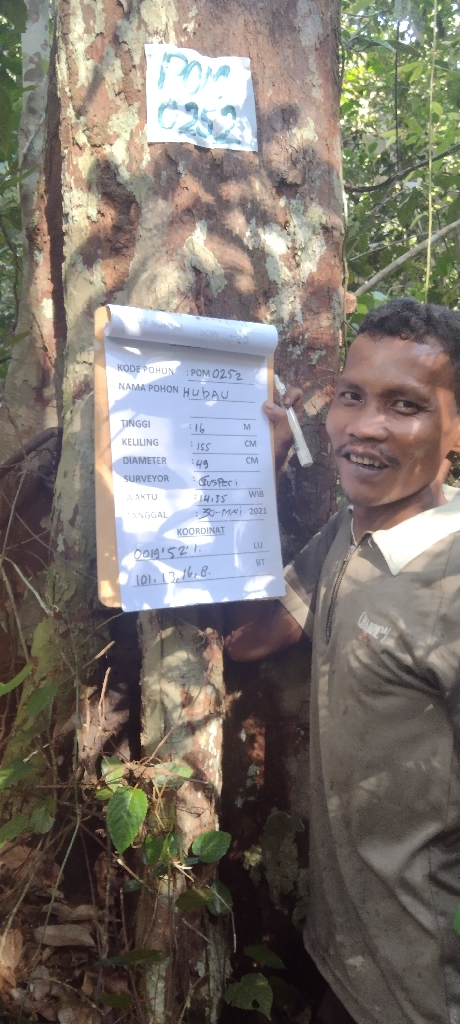 POM
0252
KODE POHON : POM 0252
NAMA POHON HUBAU
TINGGI : 16 M
KELILING : 155 CM
DIAMETER : 49 CM
SURVEYOR :
WAKTU : 14:35 WIB
TANGGAL : 30-MAI 2021
KOORDINAT
0019'52'1. LU
101.17.16.8. BT